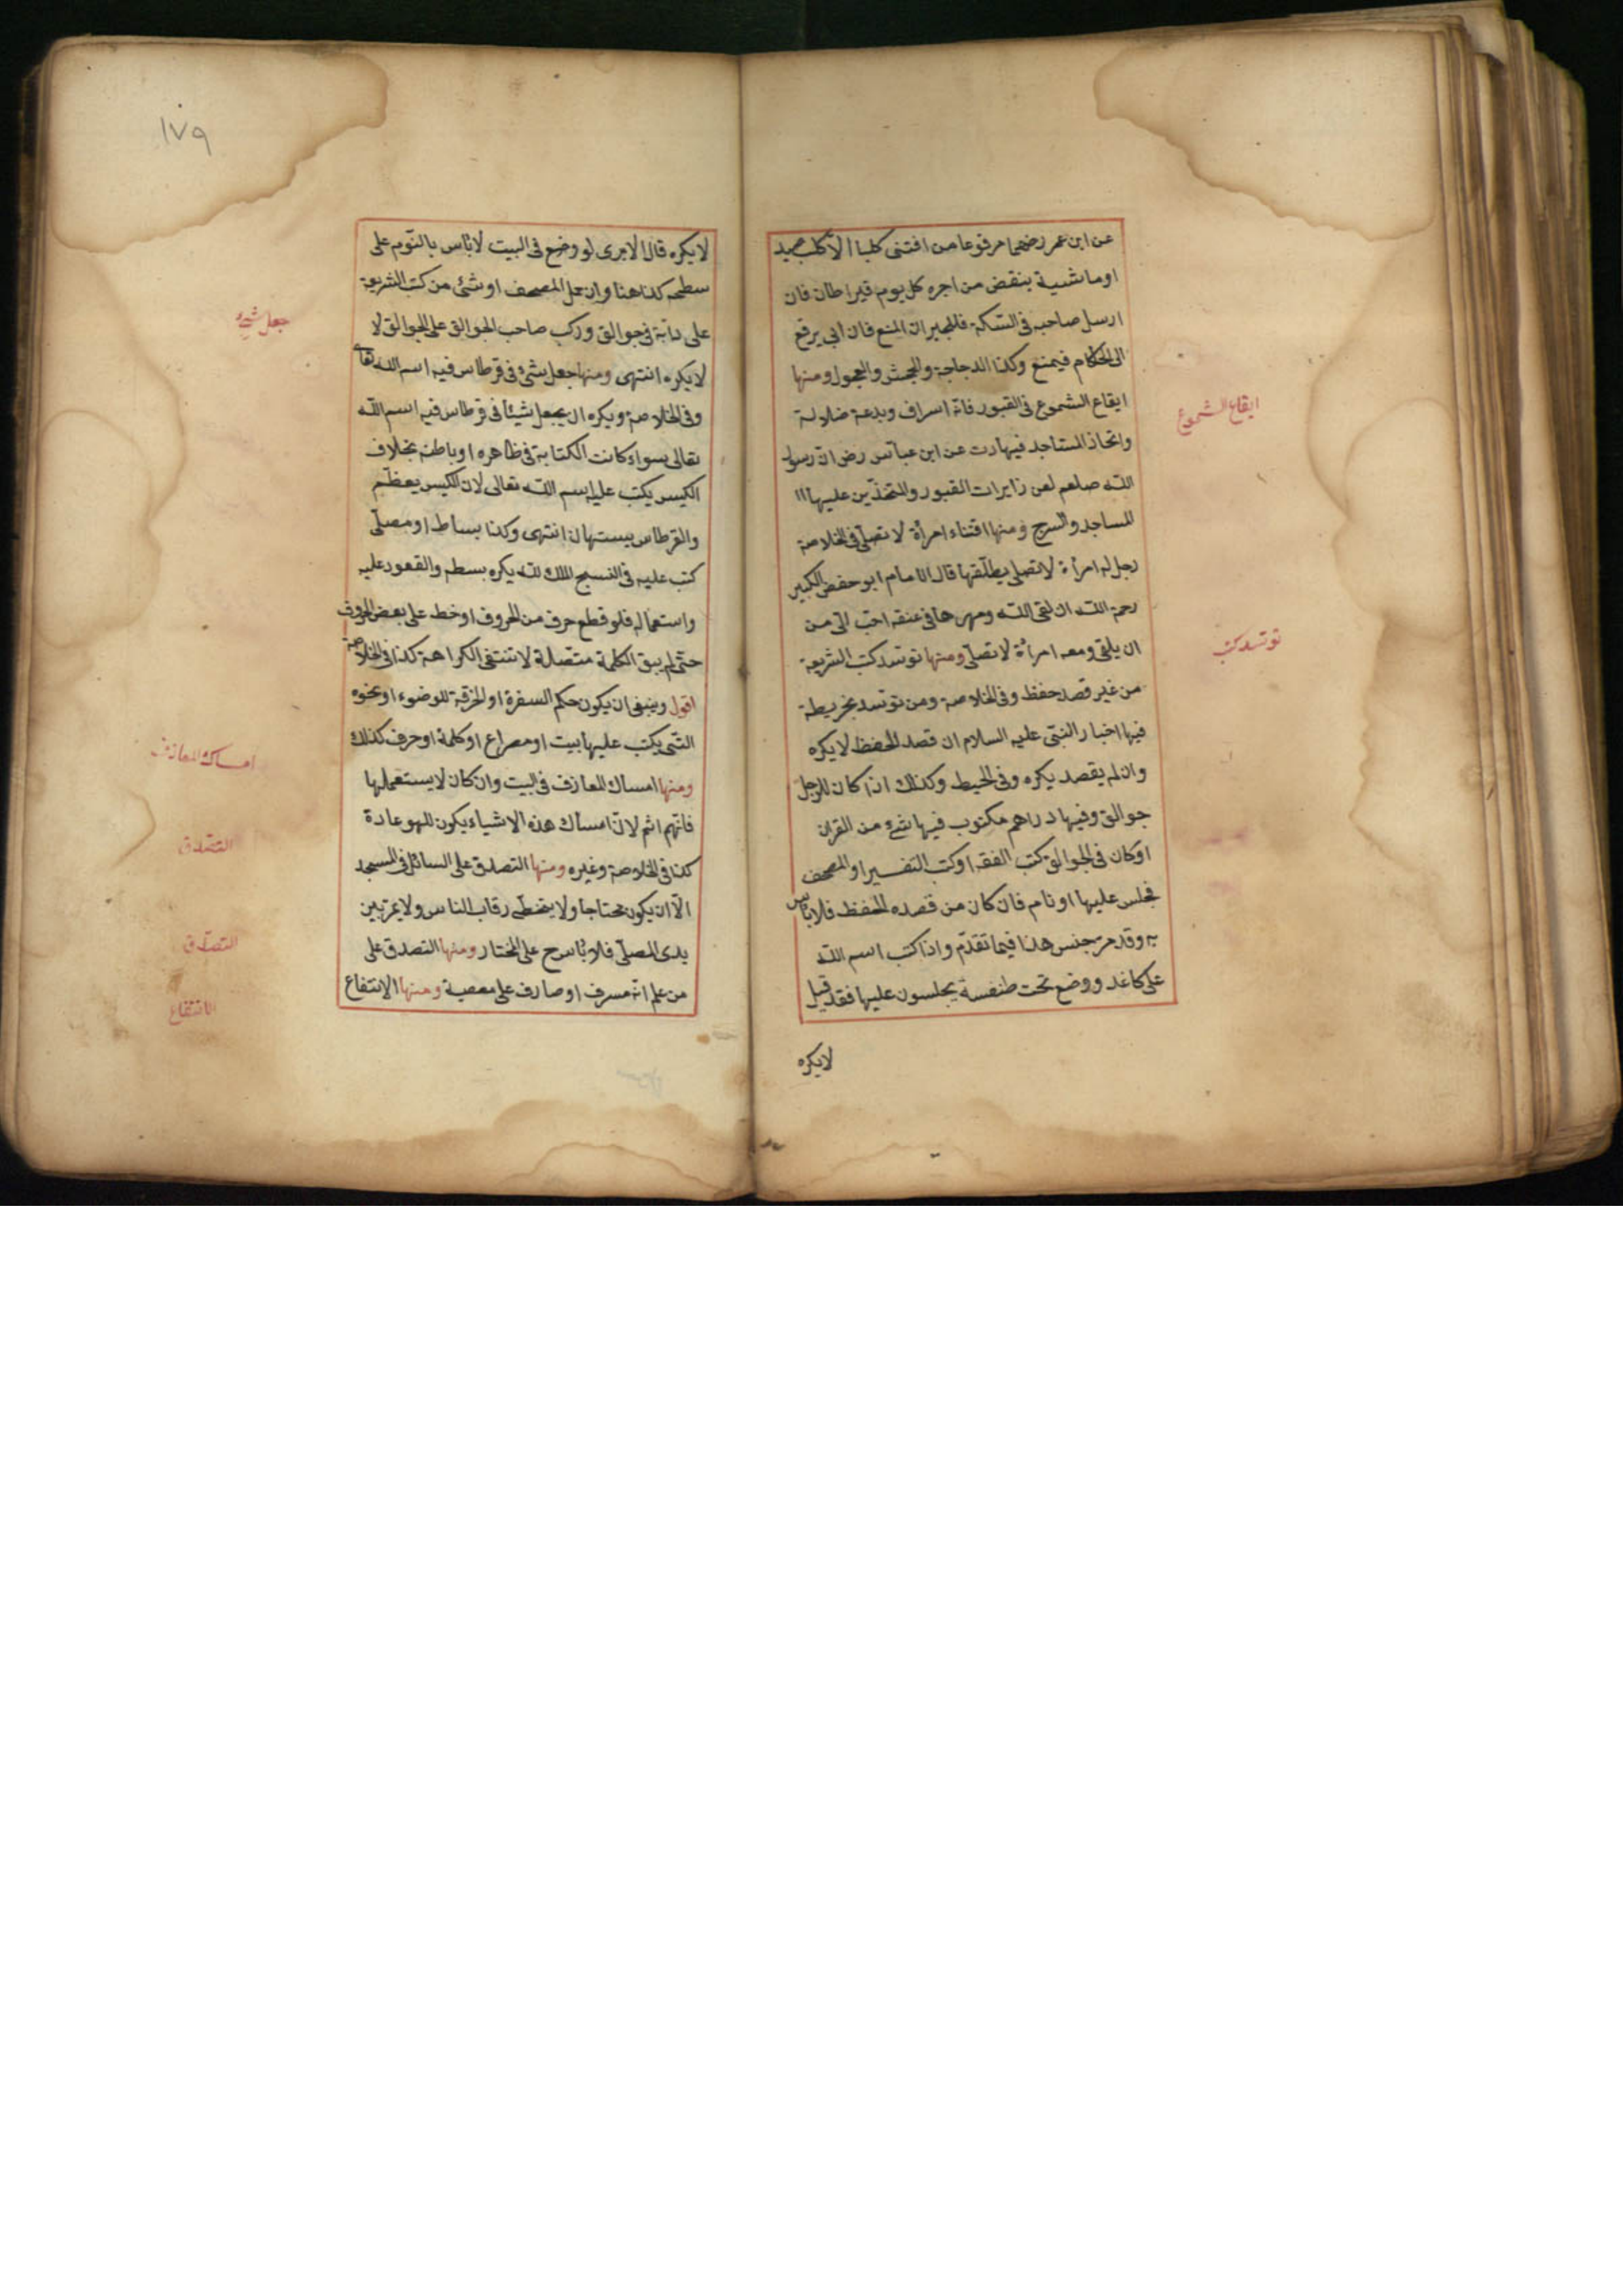 عن ابن عمر رضهما مرفوعا من اقتنى كلبا الا كلب صيد
او ماشية ينقض من اجره كل يوم قيراطان فان
ارسل صاحبه فى السكة فللجيران المنع فان ابى يرفع
الى الحكام فيمنع وكذا الدجاجة والجحش والعجول ومنها
ايقاع الشموع فى القبور فانه اسراف وبدعة ضلالة
واتخاذ المساجد فيها دت عن ابن عباس رض ان رسول
الله صلعم لعن زايرات القبور والمتخذين عليها
المساجد والسرج ومنها اقتناء امرأة لا تصلى فى الخلاصة
رجل له امرأة لا تصلى يطلقها قال الامام ابو حفض الكبير
رحمة الله ان لقى الله ومهرها فى عنقه احب الى من
ان يلقى ومعه امرأة لا تصلى ومنها توسد كتب الشريعة
من غير قصد حفظ وفى الخلاصة ومن توسد بخريطة
فيها اخبار النبى عليه السلام ان قصد الحفظ لا يكره
وان لم يقصد يكره وفى المحيط وكذلك اذا كان للرجل
جوالق وفيها دراهم مكتوب فيها شئ من القران
او كان فى الجوالق كتب الفقه او كتب التفسير او المصحف
فجلس عليها او نام فان كان من قصده الحفظ فلا باس
به وقد مر جنس هذا فيما تقدم واذا كتب اسم الله
على كاغد ووضع تحت طنفسة يجلسون عليها فقد قيل
لا يكره
ايقاع الشموع
توسد كتب
١٧٩
لا يكره قال الا يرى لو وضع فى البيت لا بأس بالنوم على
سطحه كذا هنا وان حمل المصحف او شئ من كتب الشريعة
على دابة فى جوالق وركب صاحب الجوالق على الجوالق لا
لا يكره انتهى ومنها جعل شئ فى قرطاس فيه اسم الله تعالى
وفى الخلاصة ويكره ان يجعل شيئا فى قرطاس فيه اسم الله
تعالى سواء كانت الكتابة فى ظاهره او باطنه بخلاف
الكيس يكتب عليه اسم الله تعالى لان الكيس يعظم
والقرطاس يستهان انتهى وكذا بساط او مصلى
كتب عليه فى النسج الملك لله يكره بسطه والقعود عليه
واستعماله فلو قطع حرف من الحروف او خط على بعض الحروف
حتى لم يبق الكلمة متصلة لا تنتفى الكراهة كذا فى الخلاصة
اقول وينبغى ان يكون حكم السفرة او الخرقة للوضوء او نحوه
التى يكتب عليها بيت او مصراع او كلمة او حرف كذلك
ومنها امساك المعازف فى البيت وان كان لا يستعملها
فانهم اثم لان امساك هذه الاشياء يكون للهو عادة
كذا فى الخلاصة وغيره ومنها التصدق على السائل فى المسجد
الا ان يكون محتاجا ولا يتخطى رقاب الناس ولا يمر بين
يدى المصلى فلا بأس ح على المختار ومنها التصدق على
من علم انه مسرف او صارف على معصية ومنها الانتفاع
جعل شئ
امساك المعازف
التصدق
التصدق
الانتفاع